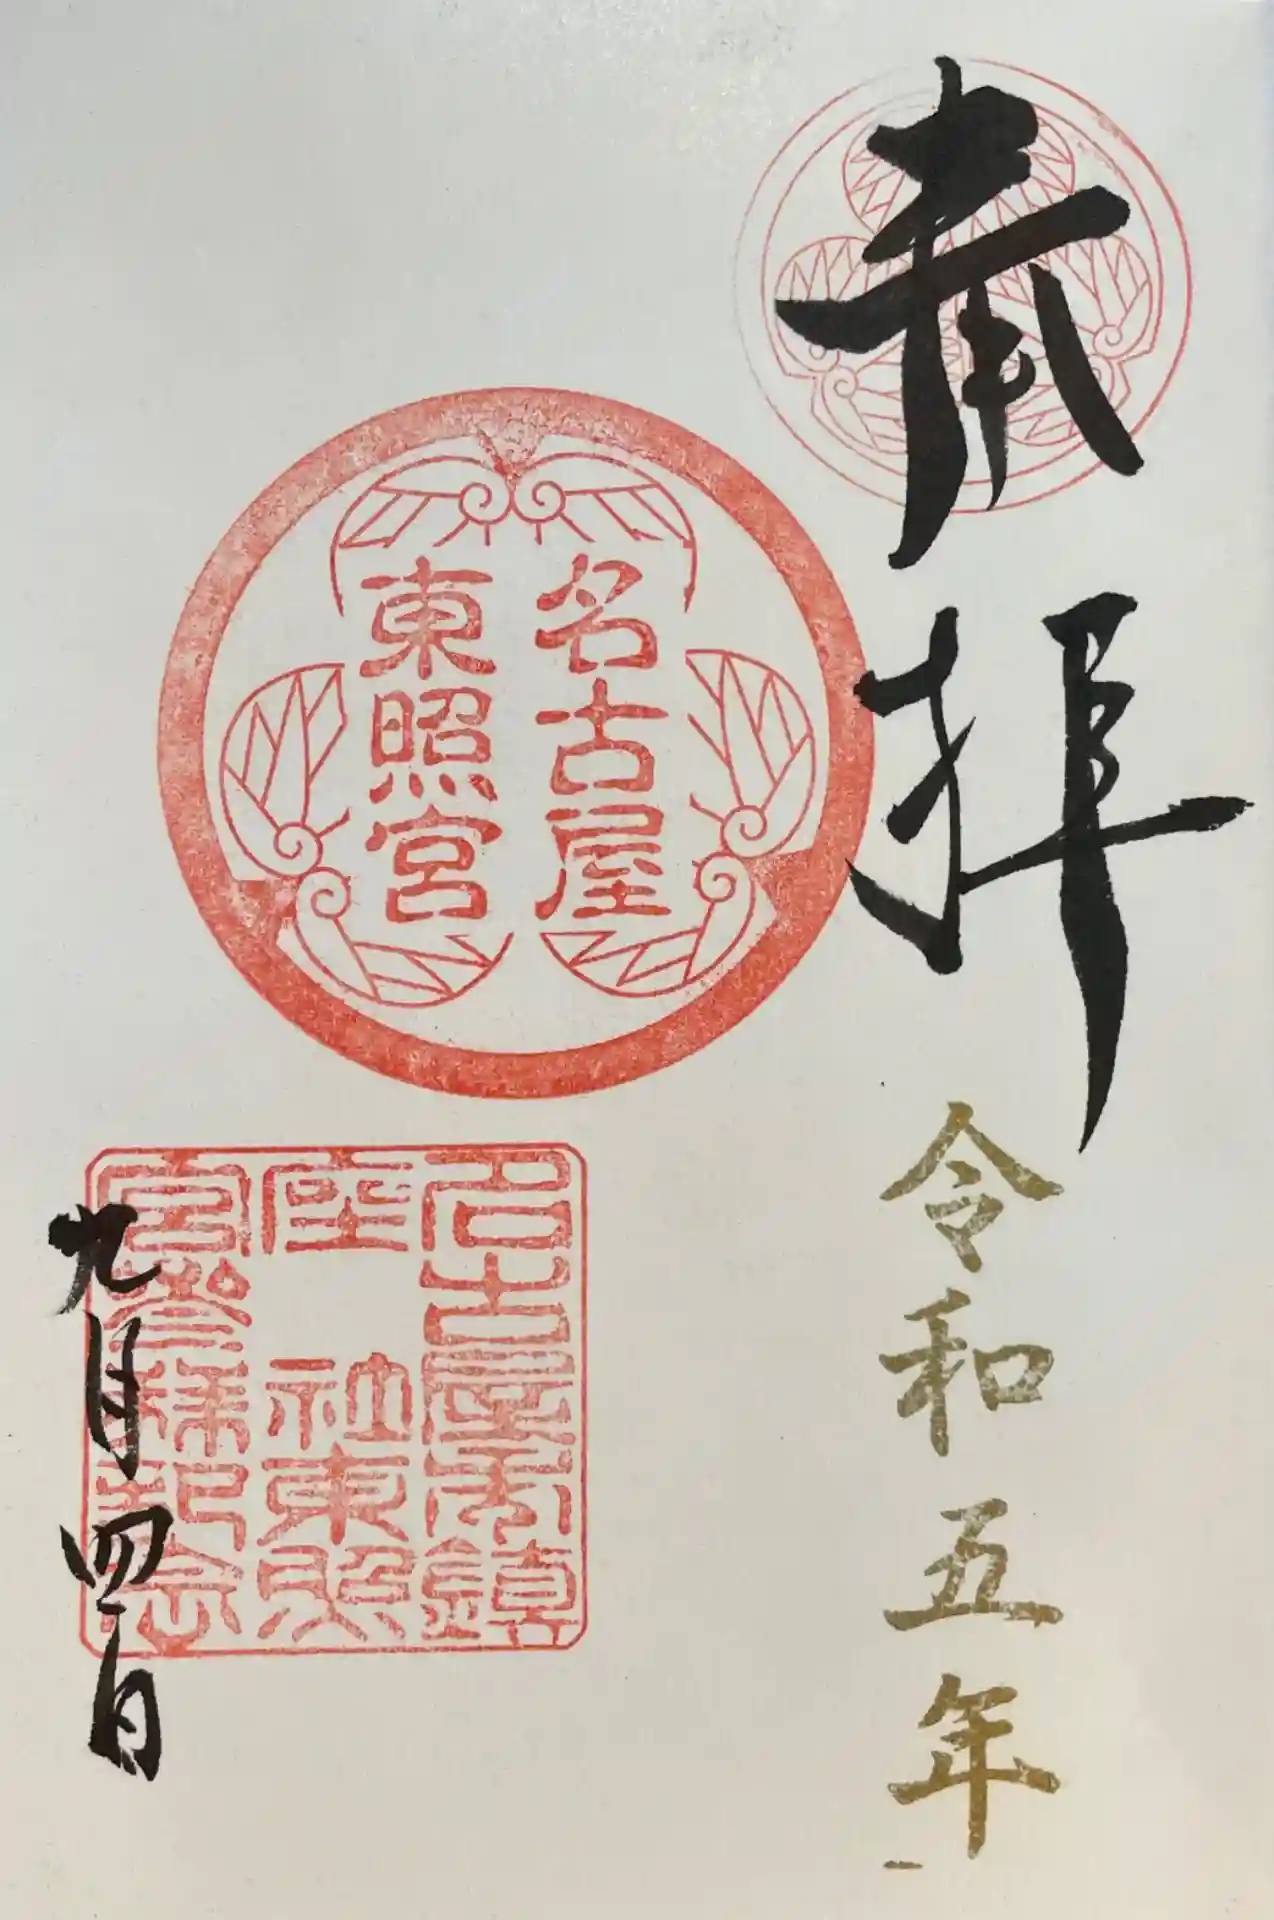 奉拝
令和五年
名古屋
東照宮
名古屋市鎮
座 社東照
宮参拝記念
九月四日